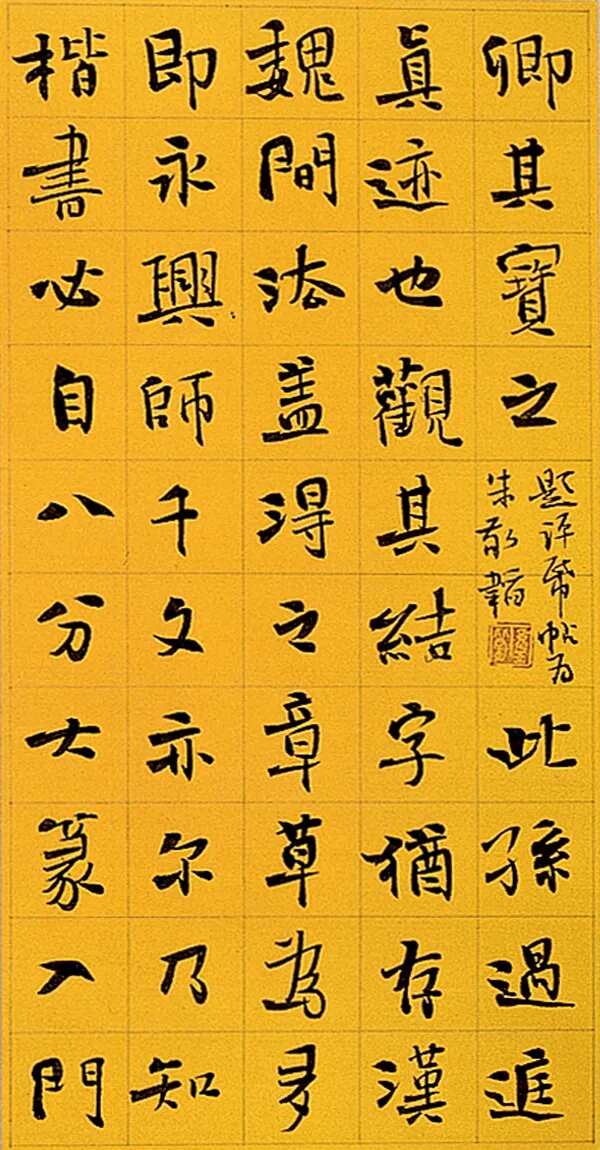 卿其寶之
題評帋帖为
朱敬韜
此孫過庭
真迹也觀其結字猶存漢
魏間法盖得之章草為多
即永興師千文亦尔乃知
楷書必自八分大篆入門